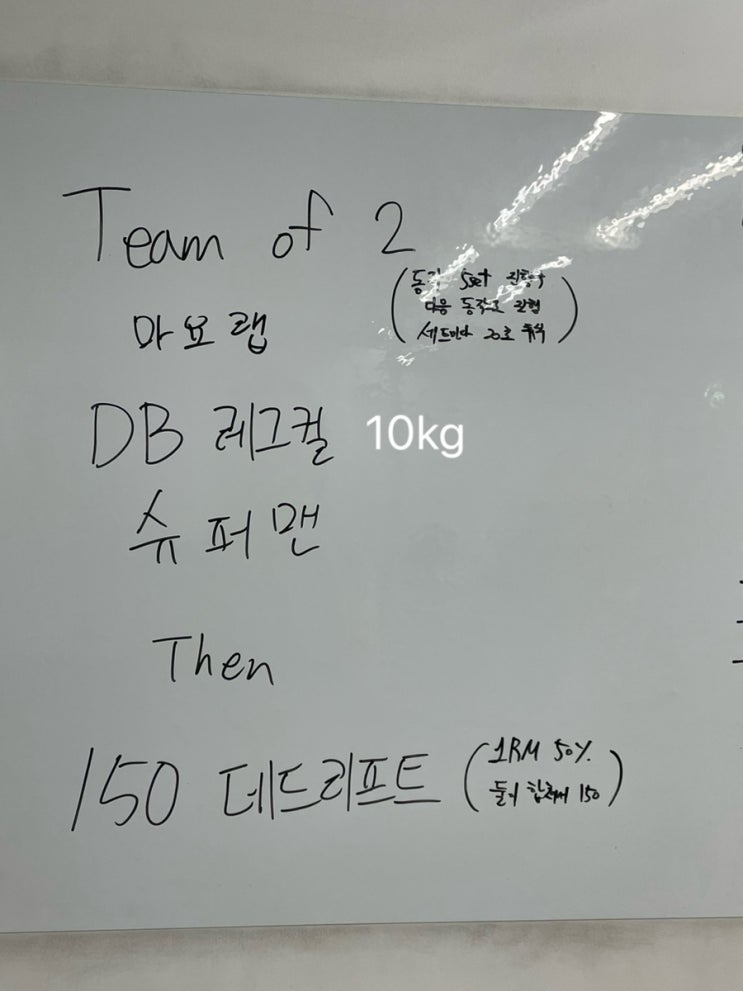 Team of 2
(동각 5set 진행후
다음 동작으로 진행
세트마다 20초 휴식)
마요랩
DB 레그컬 10kg
슈퍼맨
Then
150 데드리프트 (1RM 50%
둘이 합쳐서 150)